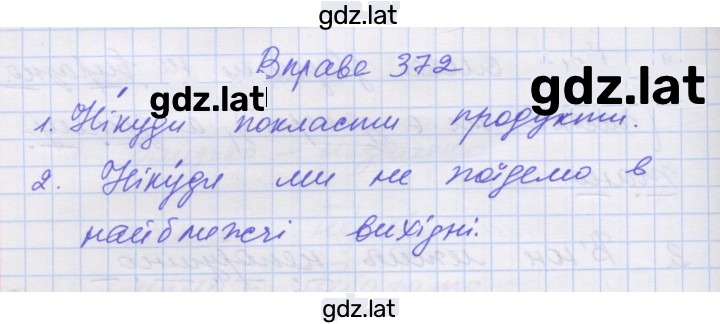 gdz.lat
Вправа 372
gdz.lat
gdz.lat
1. Ні́куди покласти продукти.
2. Ніку́ди ми не поїдемо в
найближчі вихідні.
gdz.lat